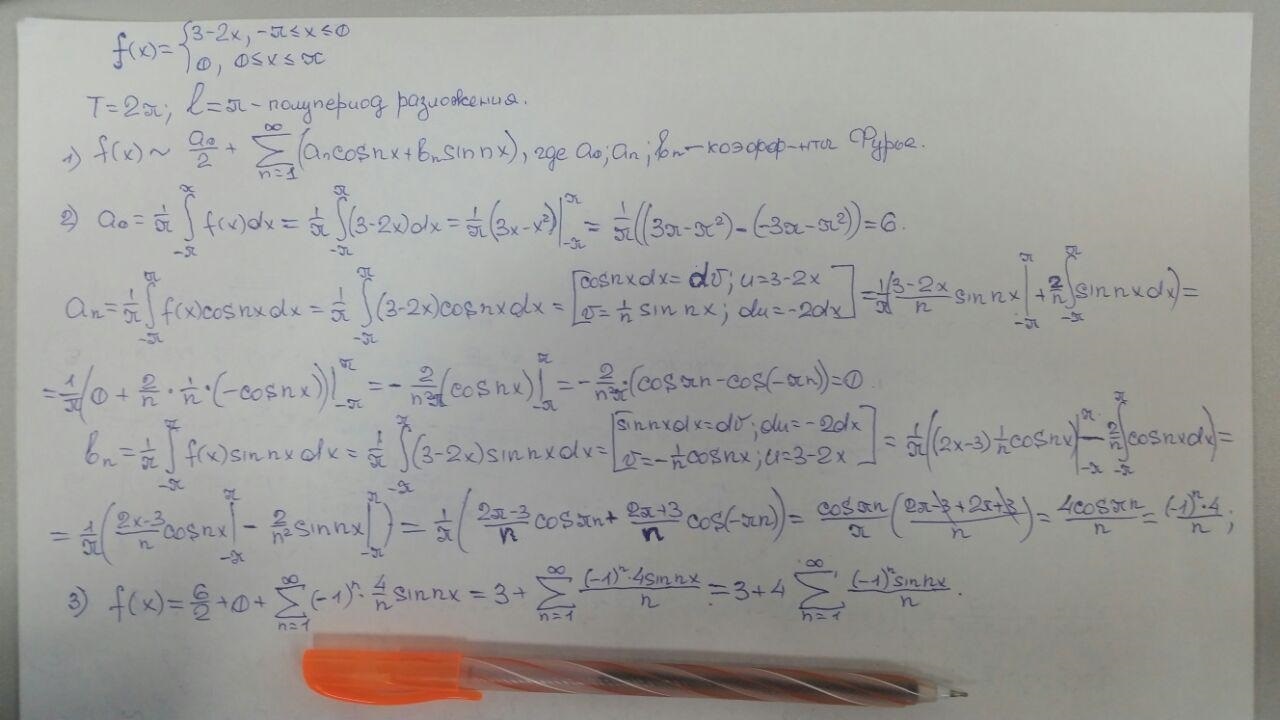 f(x) = { 3-2x, -π≤x≤0
0, 0≤x≤π
T=2π; l=π - полупериод разложения.
1) f(x) ~ a₀/2 + ∑_{n=1}^{∞} (aₙcosnx+bₙsinnx), где a₀; aₙ; bₙ - коэфф-нты Фурье.
2) a₀ = 1/π ∫_{-π}^{π} f(x)dx = 1/π ∫_{-π}^{π} (3-2x)dx = 1/π (3x-x²)|_{-π}^{π} = 1/π ((3π-π²)-(-3π-π²)) = 6.
aₙ = 1/π ∫_{-π}^{π} f(x)cosnxdx = 1/π ∫_{-π}^{π} (3-2x)cosnxdx = [cosnxdx = dv; u=3-2x v= 1/n sin nx; du=-2dx] = 1/π ((3-2x)/n sin nx |_{-π}^{π} + 2/n ∫_{-π}^{π} sin nxdx) =
= 1/π (0 + 2/n · 1/n · (-cosnx))|_{-π}^{π} = - 2/(n²π) (cosnx)|_{-π}^{π} = - 2/(n²π) · (cosπn-cos(-πn)) = 0.
bₙ = 1/π ∫_{-π}^{π} f(x)sinnxdx = 1/π ∫_{-π}^{π} (3-2x)sinnxdx = [sinnxdx=dv; du=-2dx v=-1/n cosnx; u=3-2x] = 1/π ((2x-3) 1/n cosnx |_{-π}^{π} - 2/n ∫_{-π}^{π} cosnxdx) =
= 1/π ((2x-3)/n cosnx |_{-π}^{π} - 2/n² sinnx |_{-π}^{π}) = 1/π ((2π-3)/n cosπn + (2π+3)/n cos(-πn)) = cosπn/π ((2π-3+2π+3)/n) = 4cosπn/n = (-1)ⁿ·4/n ;
3) f(x) = 6/2 + 0 + ∑_{n=1}^{∞} (-1)ⁿ · 4/n sinnx = 3 + ∑_{n=1}^{∞} (-1)ⁿ·4sinnx/n = 3 + 4 ∑_{n=1}^{∞} (-1)ⁿsinnx/n .